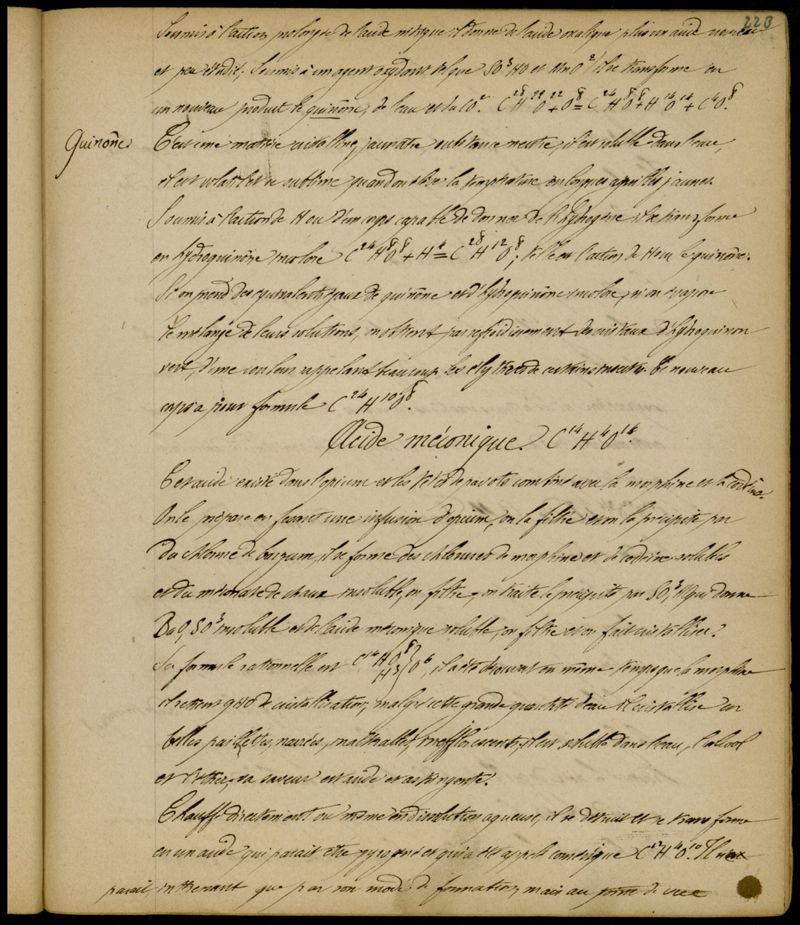 223
Soumis à l'action prolongée de l'acide nitrique il donne de l'acide oxalique plus un acide nouveau
et peu étudié. Soumis à un agent oxydant tel que SO³HO et MnO² il se transforme en
un nouveau produit le quinone, de l'eau et du CO². C²⁸H²²O²² + O⁸ = C²⁴H⁸O⁸ + H¹⁴O¹⁴ + C⁴O⁸.
Quinone. C'est une matière cristalline, jaunâtre substance neutre, il est soluble dans l'eau,
il est volatil et se sublime quand on élève la température en longues aiguilles jaunes.
Soumis à l'action de H ou d'un corps capable de donner de l'hydrogène il se transforme
en hydroquinone incolore C²⁴H⁸O⁸ + H⁴ = C²⁸H¹²O⁸; telle est l'action de H sur le quinone.
Si on prend des équivalents égaux de quinone et d'hydroquinone incolore, si on évapore
le mélange de leurs solutions, on obtient par refroidissement des cristaux d'hydroquinon
vert, d'une couleur rappelant beaucoup les élytres de certains insectes. Ce nouveau
corps a pour formule C²⁴H¹⁰O⁸.
Acide méconique. C¹⁴H⁴O¹⁴.
Cet acide existe dans l'opium et les têtes de pavots combiné avec la morphine et la codéine.
On le prépare en faisant une infusion d'opium, on la filtre et on la précipite par
du chlorure de baryum, il se forme des chlorures de morphine et de codéine solubles
et du méconate de chaux insoluble, on filtre, on traite le précipité par SO³,HO qui donne
BaO,SO³ insoluble et de l'acide méconique soluble, on filtre et on fait cristalliser.
Sa formule rationnelle est C¹⁴HO⁸ H³} O⁶, il a été découvert en même temps que la morphine
il retient 9HO de cristallisation, malgré cette grande quantité d'eau il cristallise en
belles paillettes, nacrées, inaltérables, inefflorescentes, il est soluble dans l'eau, l'alcool
et l'éther, sa saveur est acide et astringente.
Chauffé directement ou même en dissolution aqueuse, il se détruit et se transforme
en un acide qui paraît être pyrogéné et qui a été appelé coménique C¹²H⁴O¹⁰. Il n'est
parait intéressant que par son mode de formation, mais au point de vue